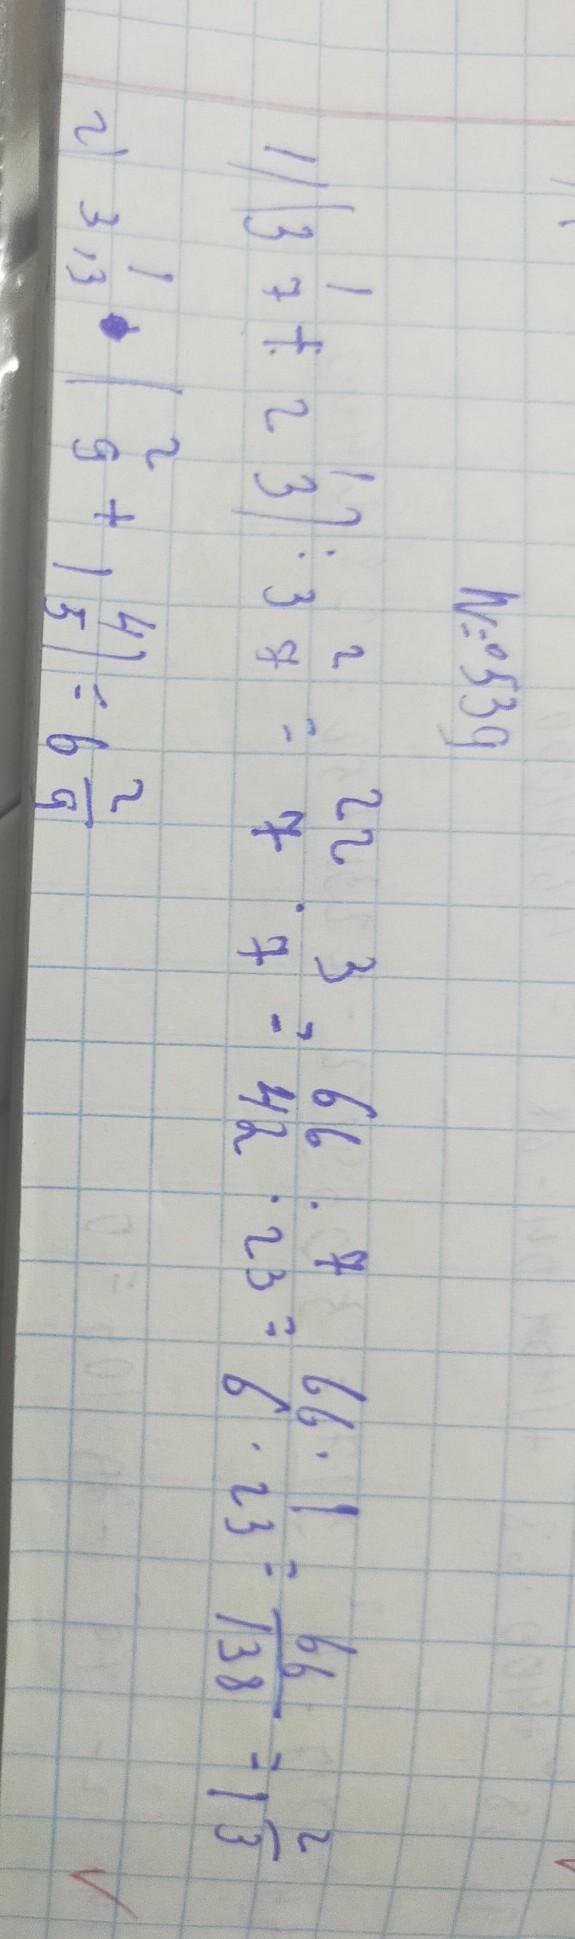 № 539
1) (3 1/7 + 2 1/3) : 3 2/7 = 22/7 · 3/7 = 66/42 · 7/23 = 66·1/6·23 = 66/138 = 1 2/3
2) 3 1/3 · (2/9 + 1 4/5) = 6 2/9